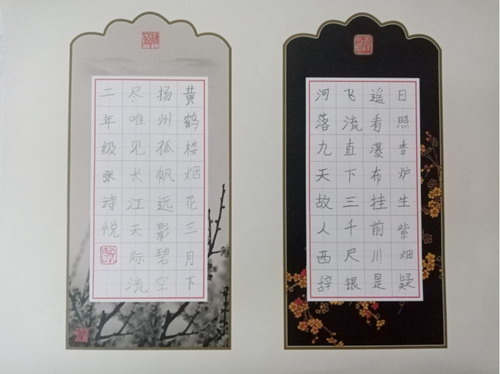 日照香炉生紫烟疑
遥看瀑布挂前川是
飞流直下三千尺银
河落九天故人西辞
黄鹤楼烟花三月下
扬州孤帆远影碧空
尽唯见长江天际流
二年级张诗悦